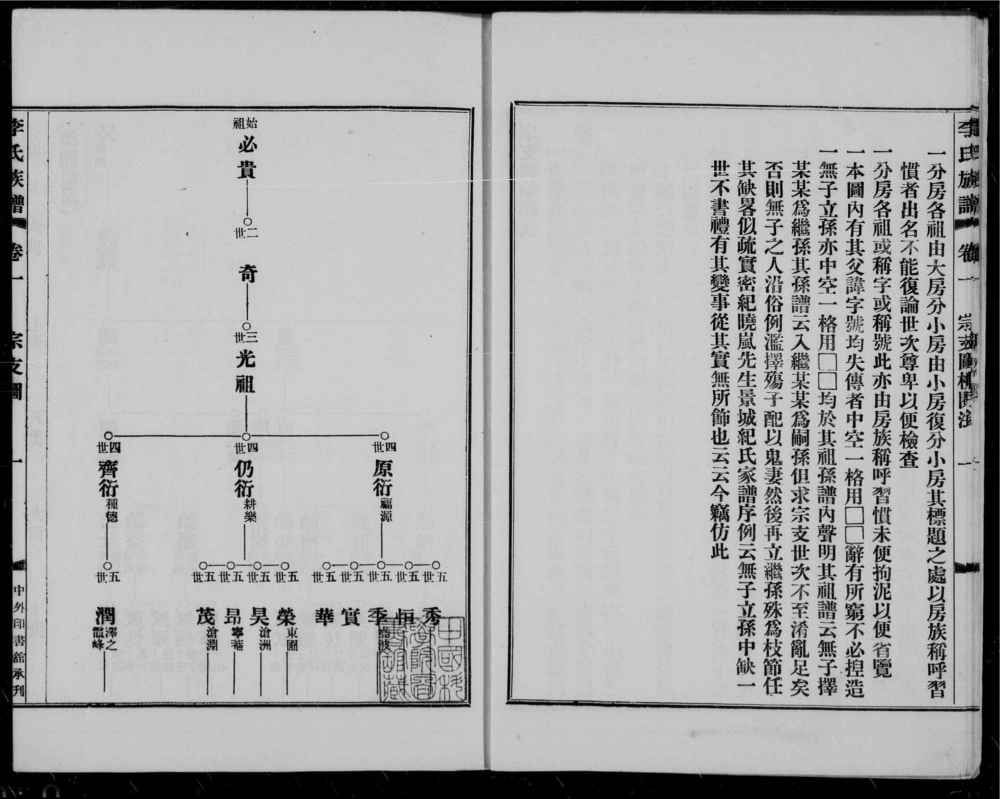 李氏族譜 卷一 宗支圖
一分房各祖由大房分小房由小房復分小房其標題之處以房族稱呼習
慣者出名不能復論世次尊卑以便檢查
一分房各祖或稱字或稱號此亦由房族稱呼習慣未便拘泥以便省覽
一本圖內有其父諱字號均失傳者中空一格用□□辭有所窮不必揑造
一無子立孫亦中空一格用□□均於其祖孫譜內聲明其祖譜云無子擇
某某爲繼孫其孫譜云入繼某某爲嗣孫但求宗支世次不至淆亂足矣
否則無子之人沿俗例濫擇殤子配以鬼妻然後再立繼孫殊爲枝節任
其缺畧似疏實密紀曉嵐先生景城紀氏家譜序例云無子立孫中缺一
世不書禮有其變事從其實無所節也云云今竊仿此
始祖
必貴
二世
奇
三世
光祖
四世
原衍 福源
四世
仍衍 耕樂
四世
齊衍 種德
五世
秀
五世
恒
五世
季
五世
實
五世
華
五世
榮 東園
五世
昊 滄洲
五世
昂 寧菴
五世
茂 滄淵
五世
潤 澤之 霞峰
李氏族譜 卷一 宗支圖 一 中外印書館承刊